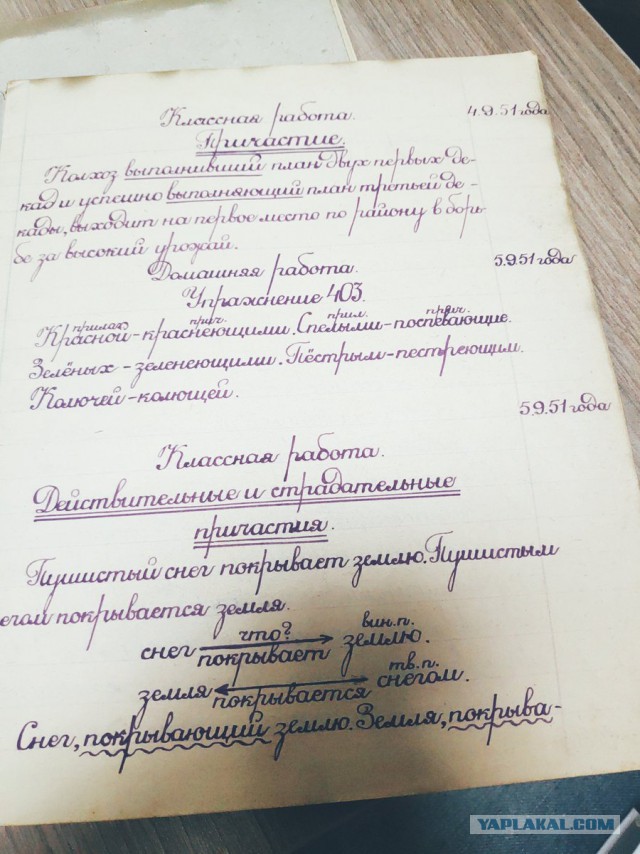 Классная работа. 4.9.51 года
Причастие.
Колхоз выполнивший план двух первых де-
кад и успешно выполняющий план третьей де-
кады, выходит на первое место по району в борь-
бе за высокий урожай.
Домашняя работа. 5.9.51 года
Упражнение 403.
прилаг. прич. прил. прич.
Красной-краснеющими. Спелыми-поспевающие.
Зелёных-зеленеющими. Пёстрым-пестреющим.
Колючей-колющей.
5.9.51 года
Классная работа.
Действительные и страдательные
причастия.
Пушистый снег покрывает землю. Пушистым
егом покрывается земля.
что? вин.п.
снег покрывает землю.
тв.п.
земля покрывается снегом.
Снег, покрывающий землю. Земля, покрыва-
YAPLAKAL.COM